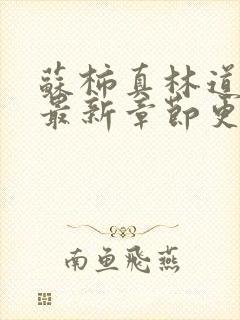 蘇柿真林道
最新章節更
南鱼飛燕